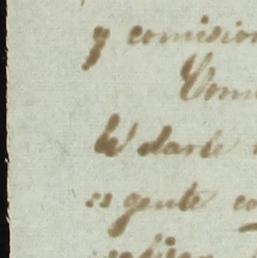 y comision
Com
le darle
es gente co